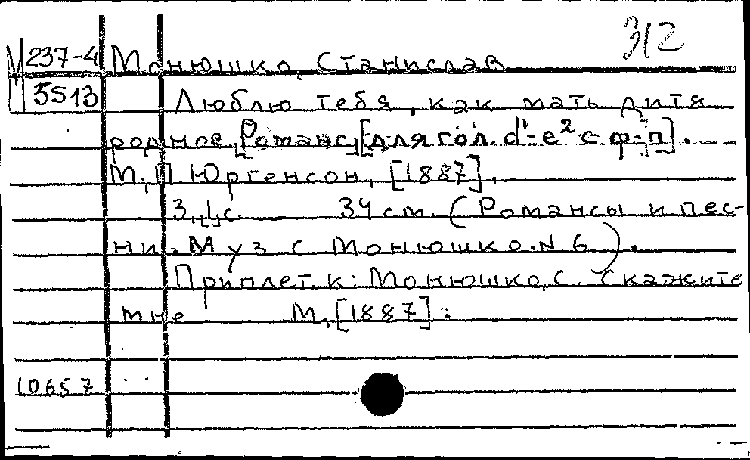 312
М 237-4 Монюшко, Станислав
5513 Люблю тебя, как мать дитя
родное. [Романс] [для гол. d¹-e² с ф-п].
М., П Юргенсон, [1887].
3, с. 34 см. (Романсы и пес-
ни. Муз С Монюшко. N 6).
Приплет. к: Монюшко, С. Скажите
мне М., [1887].
10657